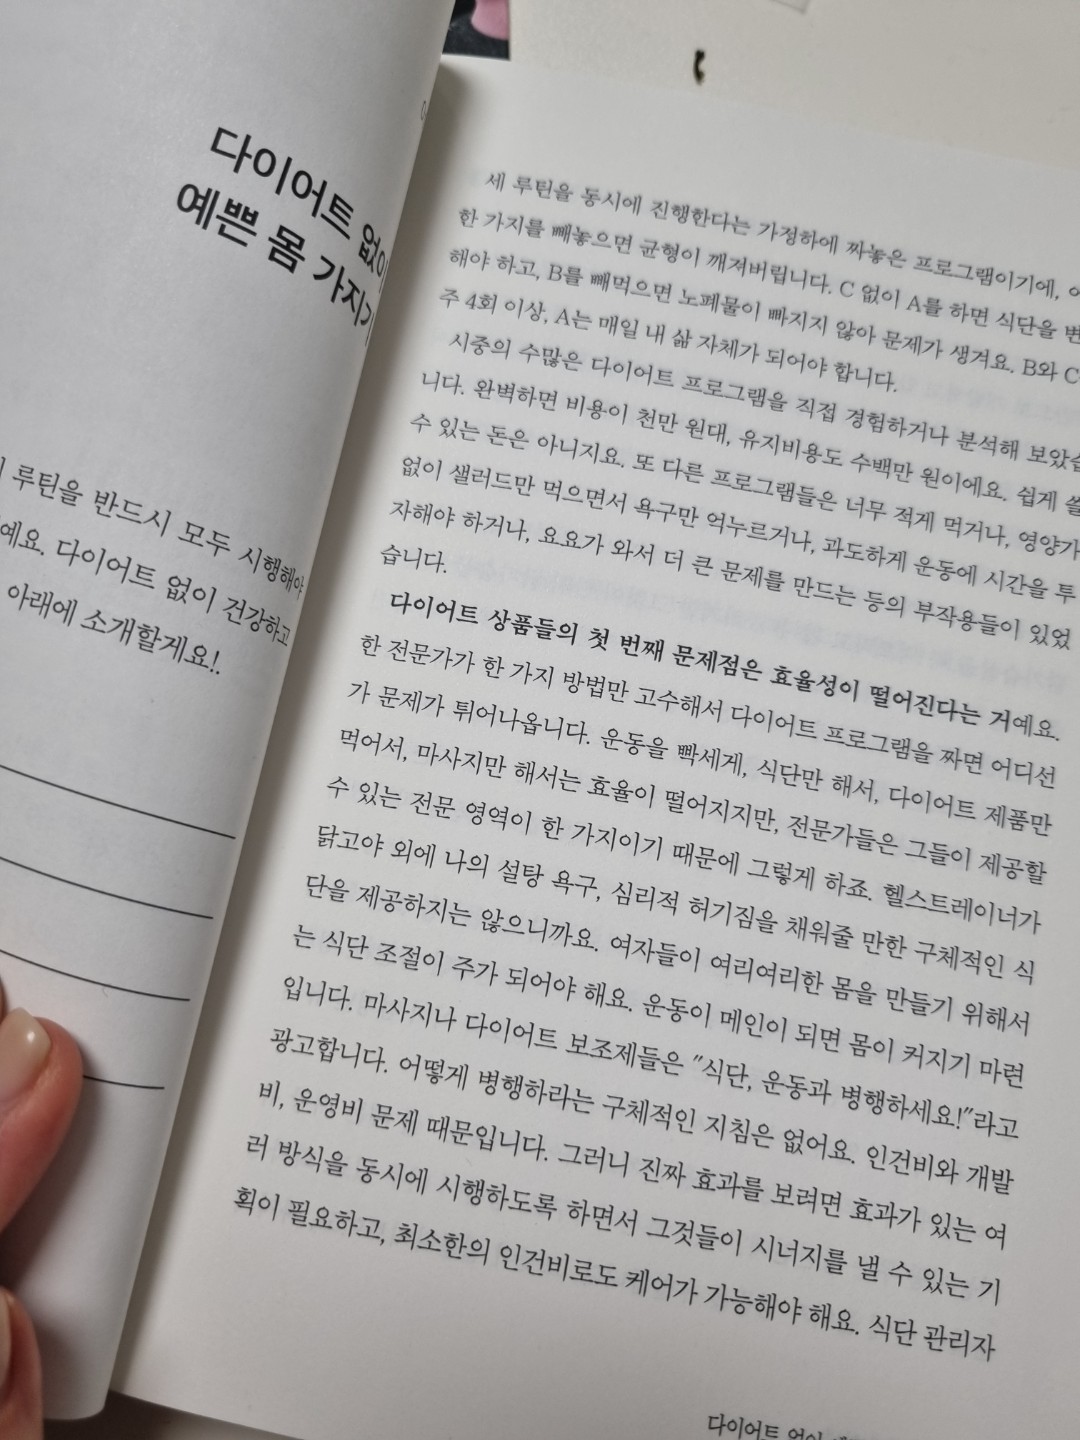 다이어트 없이
예쁜 몸 가지기
루틴을 반드시 모두 시행해야
예요. 다이어트 없이 건강하고
아래에 소개할게요!.
세 루틴을 동시에 진행한다는 가정하에 짜놓은 프로그램이기에,
한 가지를 빼놓으면 균형이 깨져버립니다. C 없이 A를 하면 식단을
해야 하고, B를 빼먹으면 노폐물이 빠지지 않아 문제가 생겨요. B와 C
주 4회 이상, A는 매일 내 삶 자체가 되어야 합니다.
시중의 수많은 다이어트 프로그램을 직접 경험하거나 분석해 보았습
니다. 완벽하면 비용이 천만 원대, 유지비용도 수백만 원이에요. 쉽게 쓸
수 있는 돈은 아니지요. 또 다른 프로그램들은 너무 적게 먹거나, 영양가
없이 샐러드만 먹으면서 욕구만 억누르거나, 과도하게 운동에 시간을 투
자해야 하거나, 요요가 와서 더 큰 문제를 만드는 등의 부작용들이 있었
습니다.
다이어트 상품들의 첫 번째 문제점은 효율성이 떨어진다는 거예요.
한 전문가가 한 가지 방법만 고수해서 다이어트 프로그램을 짜면 어디선
가 문제가 튀어나옵니다. 운동을 빡세게, 식단만 해서, 다이어트 제품만
먹어서, 마사지만 해서는 효율이 떨어지지만, 전문가들은 그들이 제공할
수 있는 전문 영역이 한 가지이기 때문에 그렇게 하죠. 헬스트레이너가
닭고야 외에 나의 설탕 욕구, 심리적 허기짐을 채워줄 만한 구체적인 식
단을 제공하지는 않으니까요. 여자들이 여리여리한 몸을 만들기 위해서
는 식단 조절이 주가 되어야 해요. 운동이 메인이 되면 몸이 커지기 마련
입니다. 마사지나 다이어트 보조제들은 "식단, 운동과 병행하세요!"라고
광고합니다. 어떻게 병행하라는 구체적인 지침은 없어요. 인건비와 개발
비, 운영비 문제 때문입니다. 그러니 진짜 효과를 보려면 효과가 있는 여
러 방식을 동시에 시행하도록 하면서 그것들이 시너지를 낼 수 있는 기
획이 필요하고, 최소한의 인건비로도 케어가 가능해야 해요. 식단 관리자
다이어트 없이